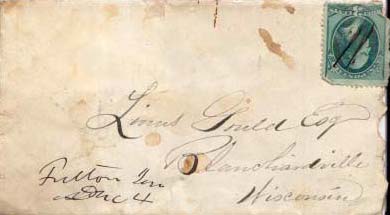 Linus Gould Esq
Blanchardville
Wisconsin
Fulton
Dec 4